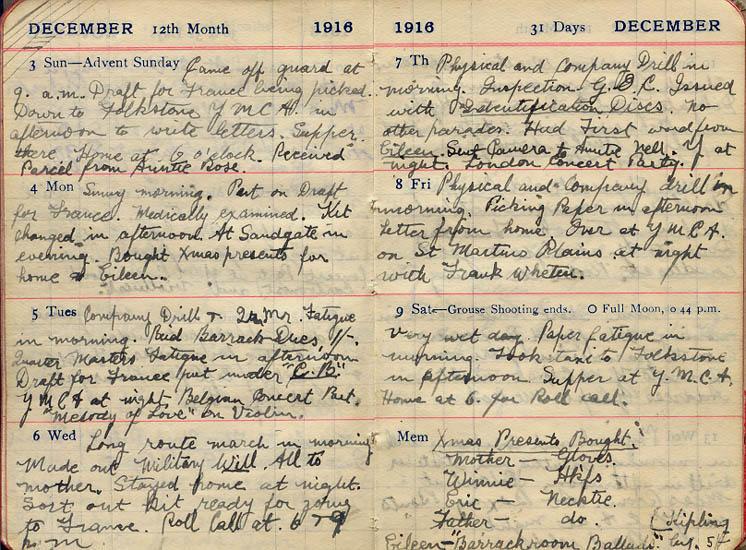 DECEMBER 12th Month 1916
3 Sun—Advent Sunday Came off guard at
9. a.m. Draft for France being picked.
Down to Folkstone Y M C A. in
afternoon to write letters. Supper
there Home at 6 o'clock. Received
Parcel from Auntie Rose.
4 Mon Sunny morning. Put on Draft
for France. Medically examined. Kit
changed in afternoon. At Sandgate in
evening. Bought Xmas presents for
home & Eileen.
5 Tues Company Drill & Mr. Fatigue
in morning. Paid Barrack Dues, 1/-.
Quarter Masters Fatigue in afternoon
Draft for France put under "C.B."
Y M C A at night Belgian Concert Part.
"Melody of Love" on Violin.
6 Wed Long route march in morning
Made out Military Will. All to
mother. Stayed home at night.
Sort out Kit ready for going
to France. Roll Call at 6 & 9
p.m.
1916 31 Days DECEMBER
7 Th Physical and Company Drill in
morning. Inspection G.O.C. Issued
with Identification Discs. no
other parades. Had First word from
Eileen. Sent Camera to Auntie Nell. Y at
night. London Concert Party.
8 Fri Physical and Company drill in
morning. Picking Paper in afternoon
Letter from home. Over at Y M C A.
on St Martins Plains at night
with Frank Wheten.
9 Sat—Grouse Shooting ends. O Full Moon, 0 44 p.m.
Very wet day. Paper fatigue in
morning. Took taxi to Folkstone
in afternoon. Supper at Y.M.C.A.
Home at 6. for Roll call.
Mem Xmas Presents Bought.
Mother — Gloves.
Winnie — Hkfs
Eric — Necktie.
Father — do. (Kipling
Eileen—"Barrackroom Ballads" by. 5/-